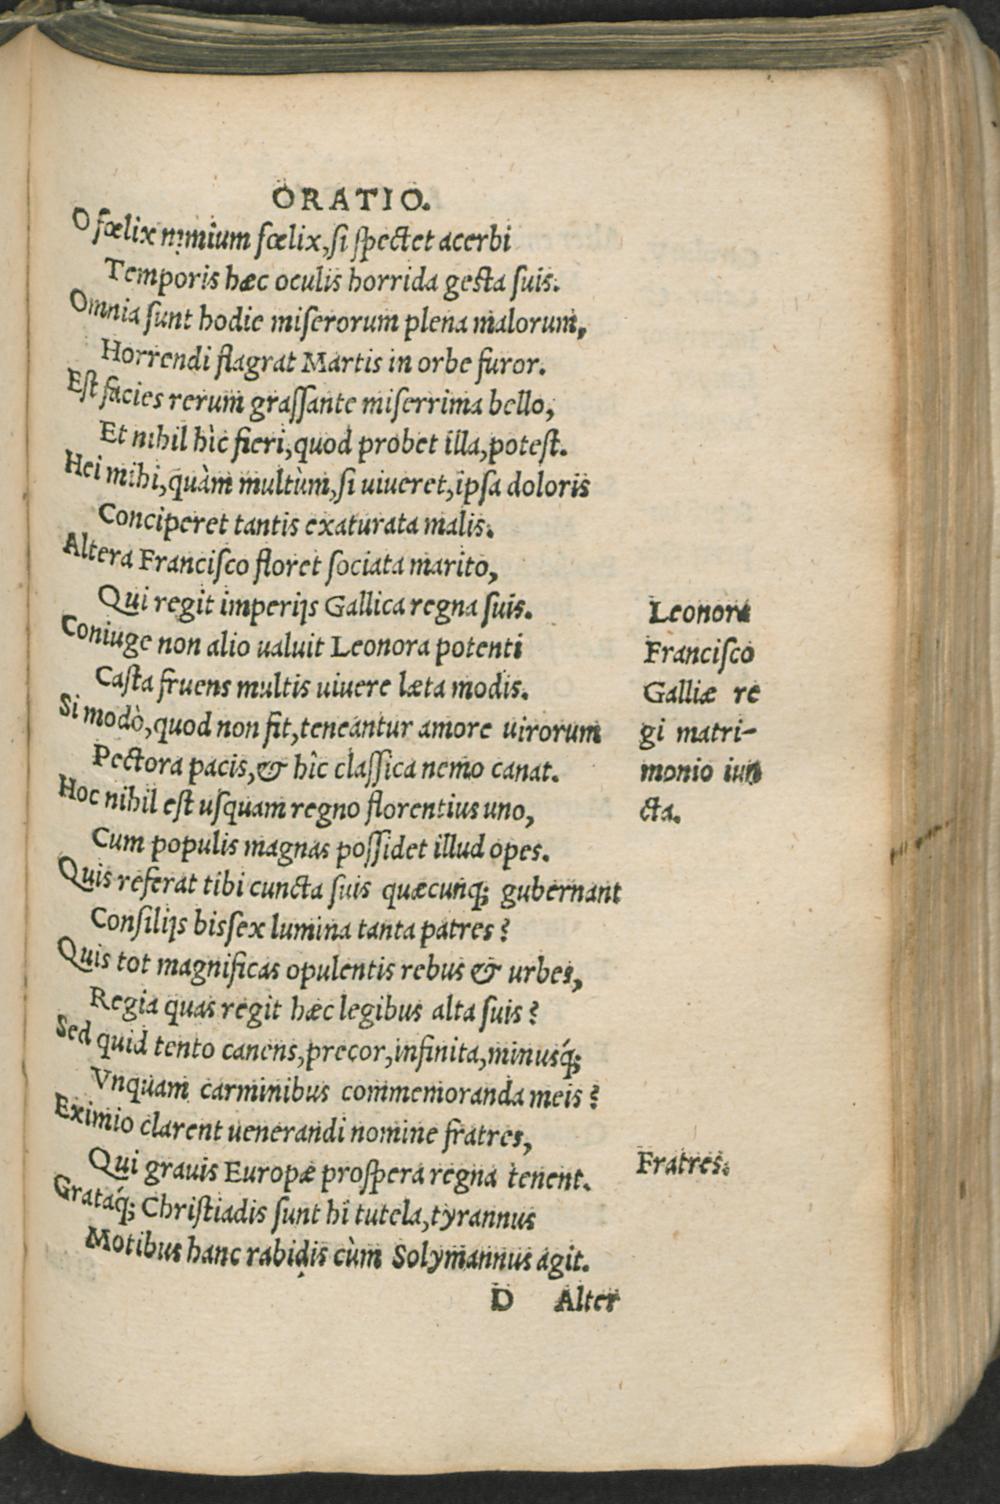 ORATIO.
O fœlix nimium fœlix, ſi ſpectet acerbi
Temporis hæc oculis horrida geſta ſuis.
Omnia ſunt hodie miſerorum plena malorum,
Horrendi flagrat Martis in orbe furor.
Eſt facies rerum graſſante miſerrima bello,
Et nihil hìc fieri, quod probet illa, poteſt.
Hei mihi, quàm multùm, ſi uiueret, ipſa doloris
Conciperet tantis exaturata malis.
Altera Franciſco floret ſociata marito,
Qui regit imperijs Gallica regna ſuis.
Coniuge non alio ualuit Leonora potenti
Caſta fruens multis uiuere læta modis.
Si modò, quod non fit, teneantur amore uirorum
Pectora pacis, & hîc claſſica nemo canat.
Hoc nihil eſt uſquam regno florentius uno,
Cum populis magnas poſſidet illud opes.
Quis referat tibi cuncta ſuis quæcunq; gubernant
Conſilijs bisſex lumina tanta patres?
Quis tot magnificas opulentis rebus & urbes,
Regia quas regit hæc legibus alta ſuis?
Sed quid tento canens, precor, infinita, minusq́;
Vnquam carminibus commemoranda meis?
Eximio clarent uenerandi nomine fratres,
Qui grauis Europæ proſpera regna tenent.
Grataq́; Chriſtiadis ſunt hi tutela, tyrannus
Motibus hanc rabidis cùm Solymannus agit.
D Alter
Leonora
Franciſco
Galliæ re
gi matri-
monio iun
cta.
Fratres.